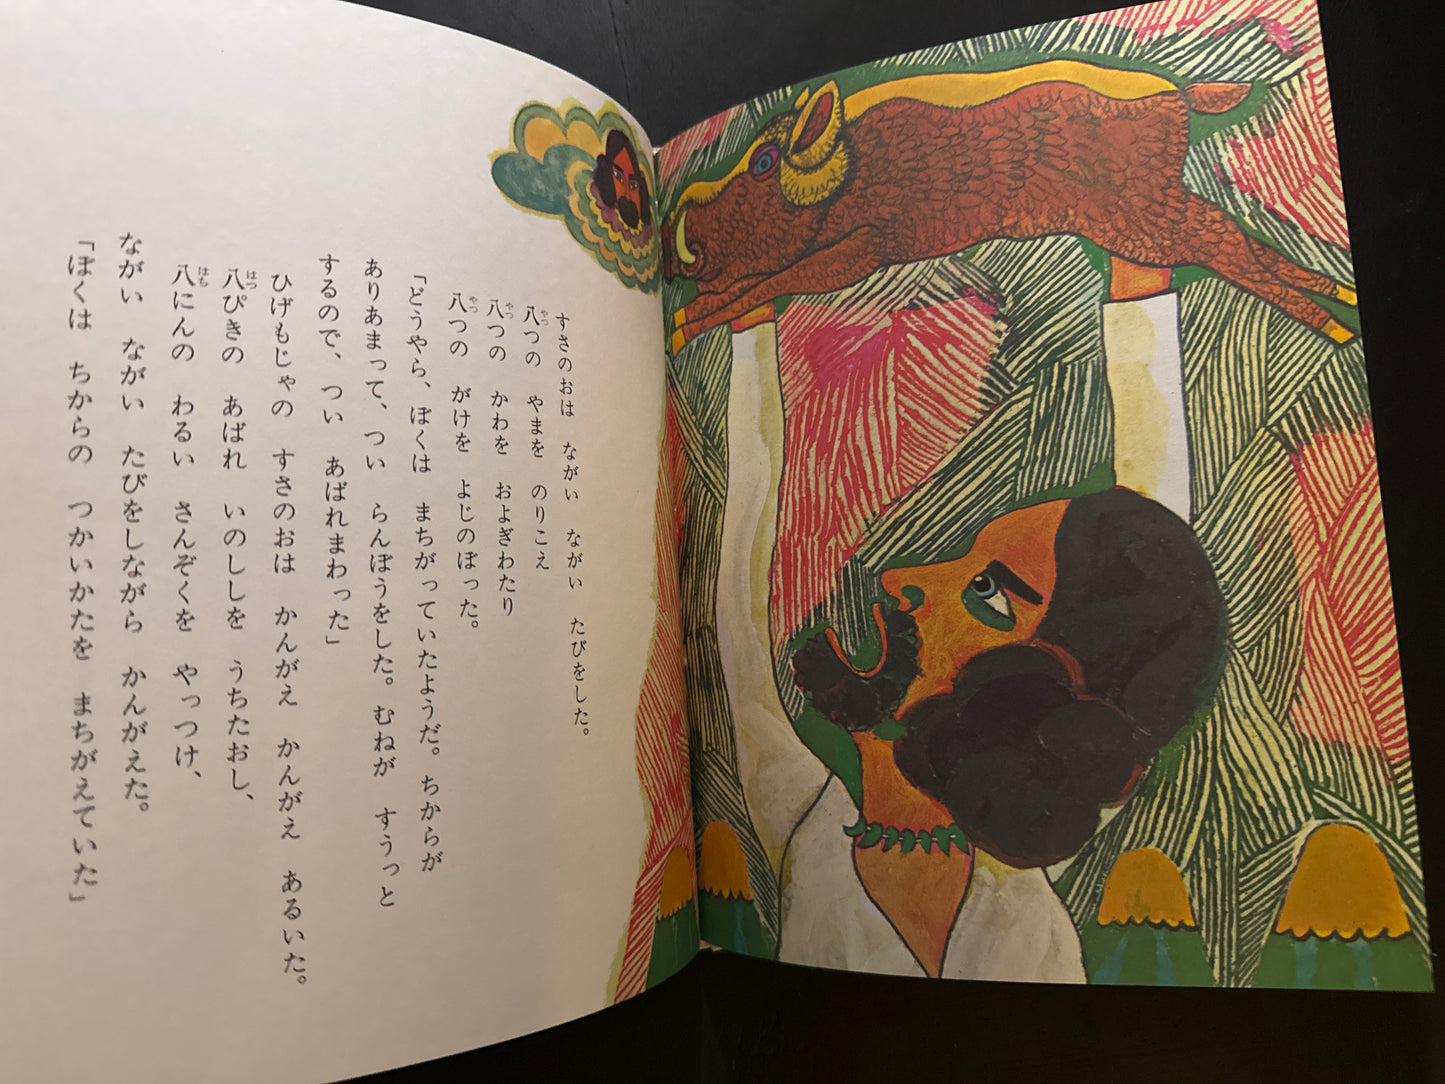 すさのおは　ながい　ながい　たびをした。
八つの　やまを　のりこえ
八つの　かわを　およぎわたり
八つの　がけを　よじのぼった。
「どうやら、ぼくは　まちがっていたようだ。ちからが
ありあまって、つい　らんぼうをした。むねが　すうっと
するので、つい　あばれまわった」
ひげもじゃの　すさのおは　かんがえ　かんがえ　あるいた。
八ぴきの　あばれ　いのししを　うちたおし、
八にんの　わるい　さんぞくを　やっつけ、
ながい　ながい　たびをしながら　かんがえた。
「ぼくは　ちからの　つかいかたを　まちがえていた」